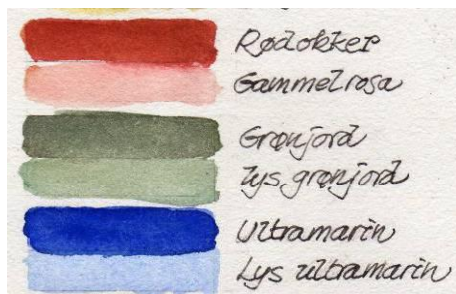 Rødokker
Gammelrosa
Grønjord
Lys grønjord
Ultramarin
Lys ultramarin